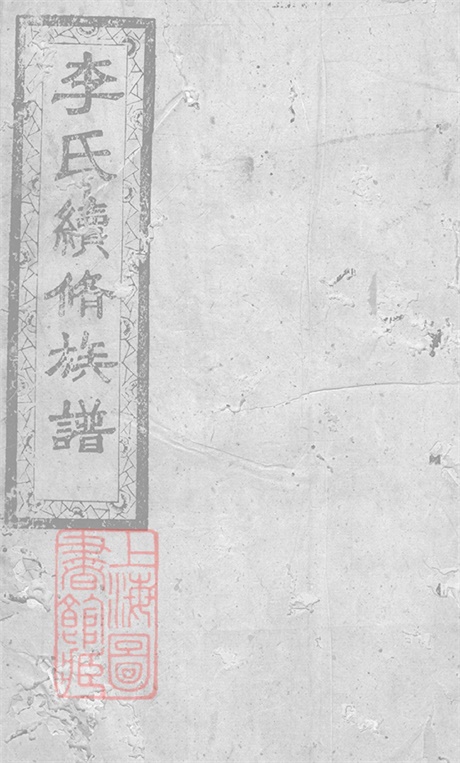 李氏續脩族譜
上海圖
書館藏